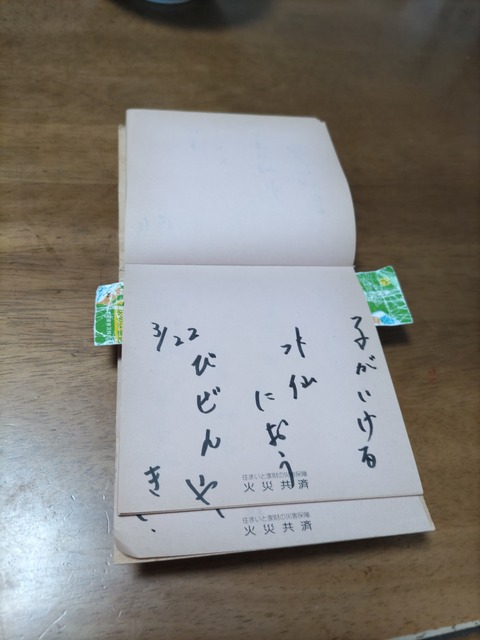 子がいける
水仙
におう
びどん
3/22
き
住まいと家財の災害保障
火災共済
住まいと家財の災害保障
火災共済